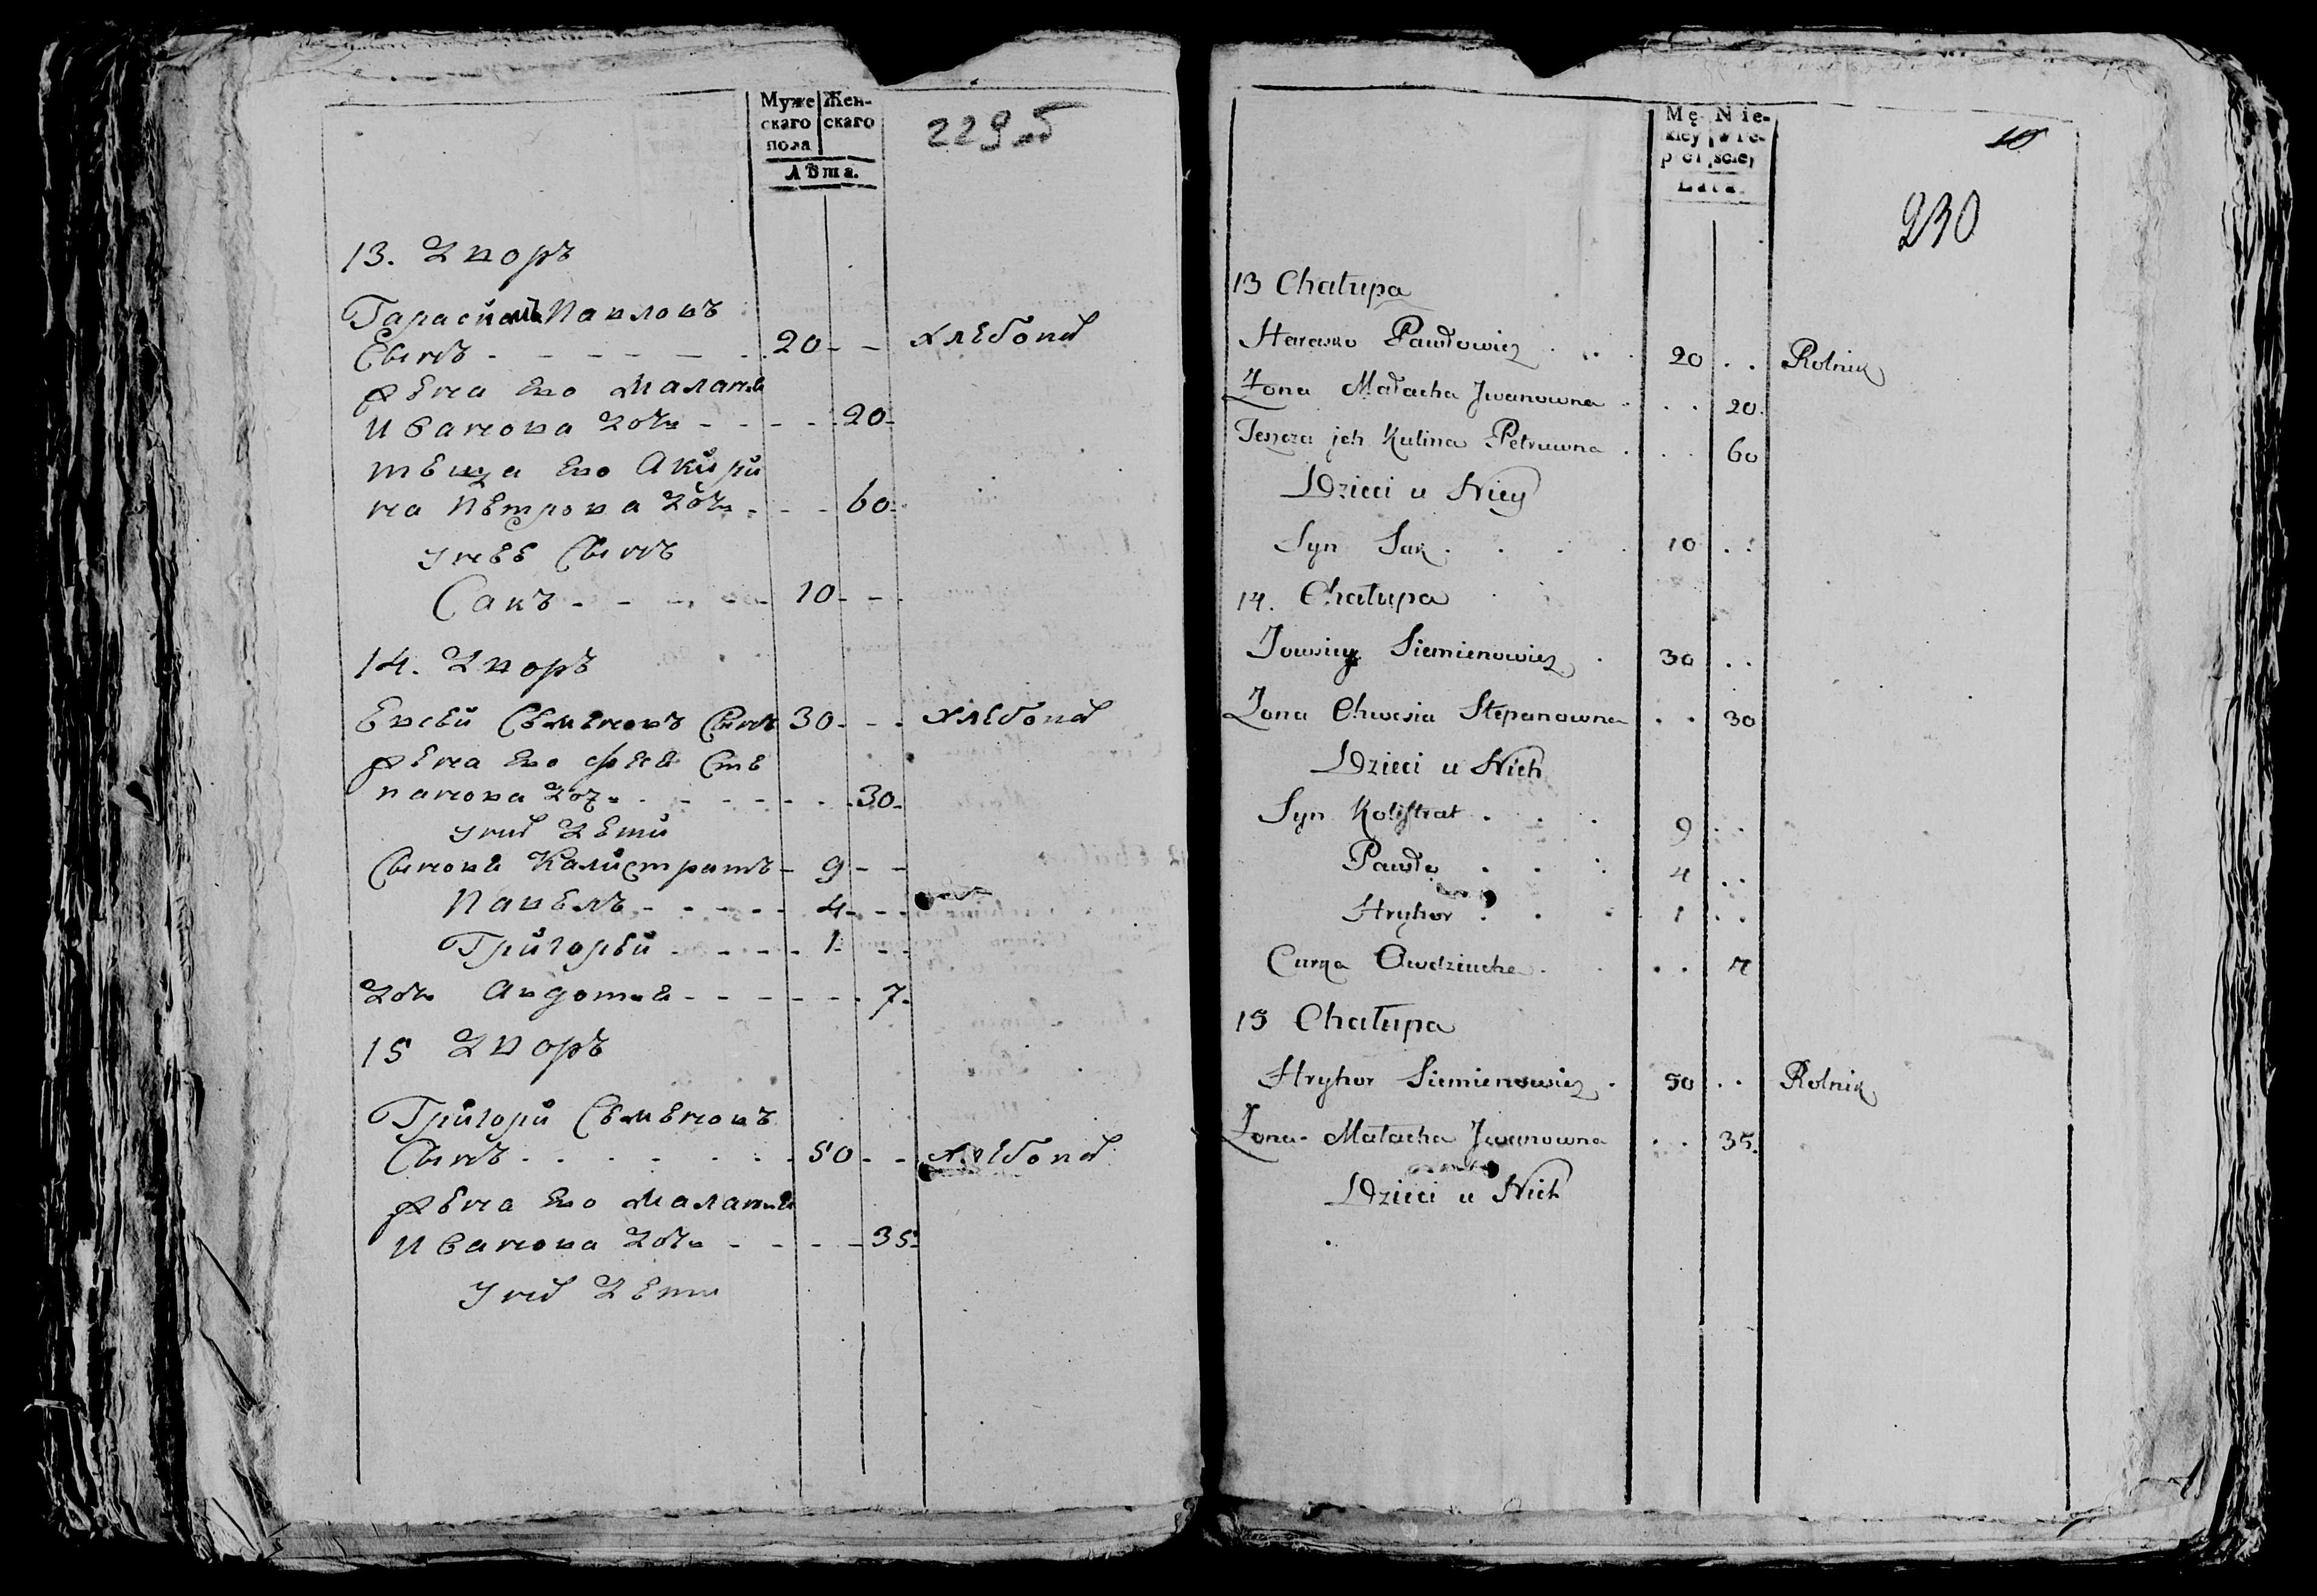 Муже Жен-
скаго скаго
пола
Лѣта.
229 об
13. Дворъ
Гарасимъ Павловъ
Сынъ - - - - - - 20 - - Хлебопа
жена его Малания
Ивановa Доч - - - - - 20 -
теща его Акири
на Петрова Доч - - - 60 -
у нее Сынъ
Сакъ - - - - - 10 - - -
14. Дворъ
Евсей Семеновъ Сынъ 30 - - - Хлебопа
жена его Феся Сте
панова Доч - - - - - - 30 -
у них Дети
Сыновя Калистратъ - 9 - -
Павелъ - - - - - 4 - - -
Григорей - - - - - 1 - - -
Доч Авдотия - - - - - - 7 -
15 Дворъ
Григори Семеновъ
Сынъ - - - - - - 50 - - Хлебопа
жена его Малания
Иванова Доч - - - - 35 -
У них Дети
Mę- Nie-
kiey wie-
płci sciey
Lata.
10
230
13 Chałupa
Harasko Pawłowicz . . . 20 . . Rolnik
Żona Małacha Jwanowna . . . 20.
Teszcza jch Kulina Petruwna . . . 60
Dzieci u Niey
Syn Sak . . . . 10 . .
14. Chałupa
Jowsiey Siemienowicz . 30 . .
Żona Chwesia Stepanowna . . 30
Dzieci u Nich
Syn Kolistrat . . . 9 . .
Pawło . . . 4 . .
Hryhor . . . 1 . .
Curka Owdziucha . . . . 7
15 Chałupa
Hryhor Siemienowicz . 50 . . Rolnik
Żona Małacha Jwanowna . . 35.
Dzieci u Nich